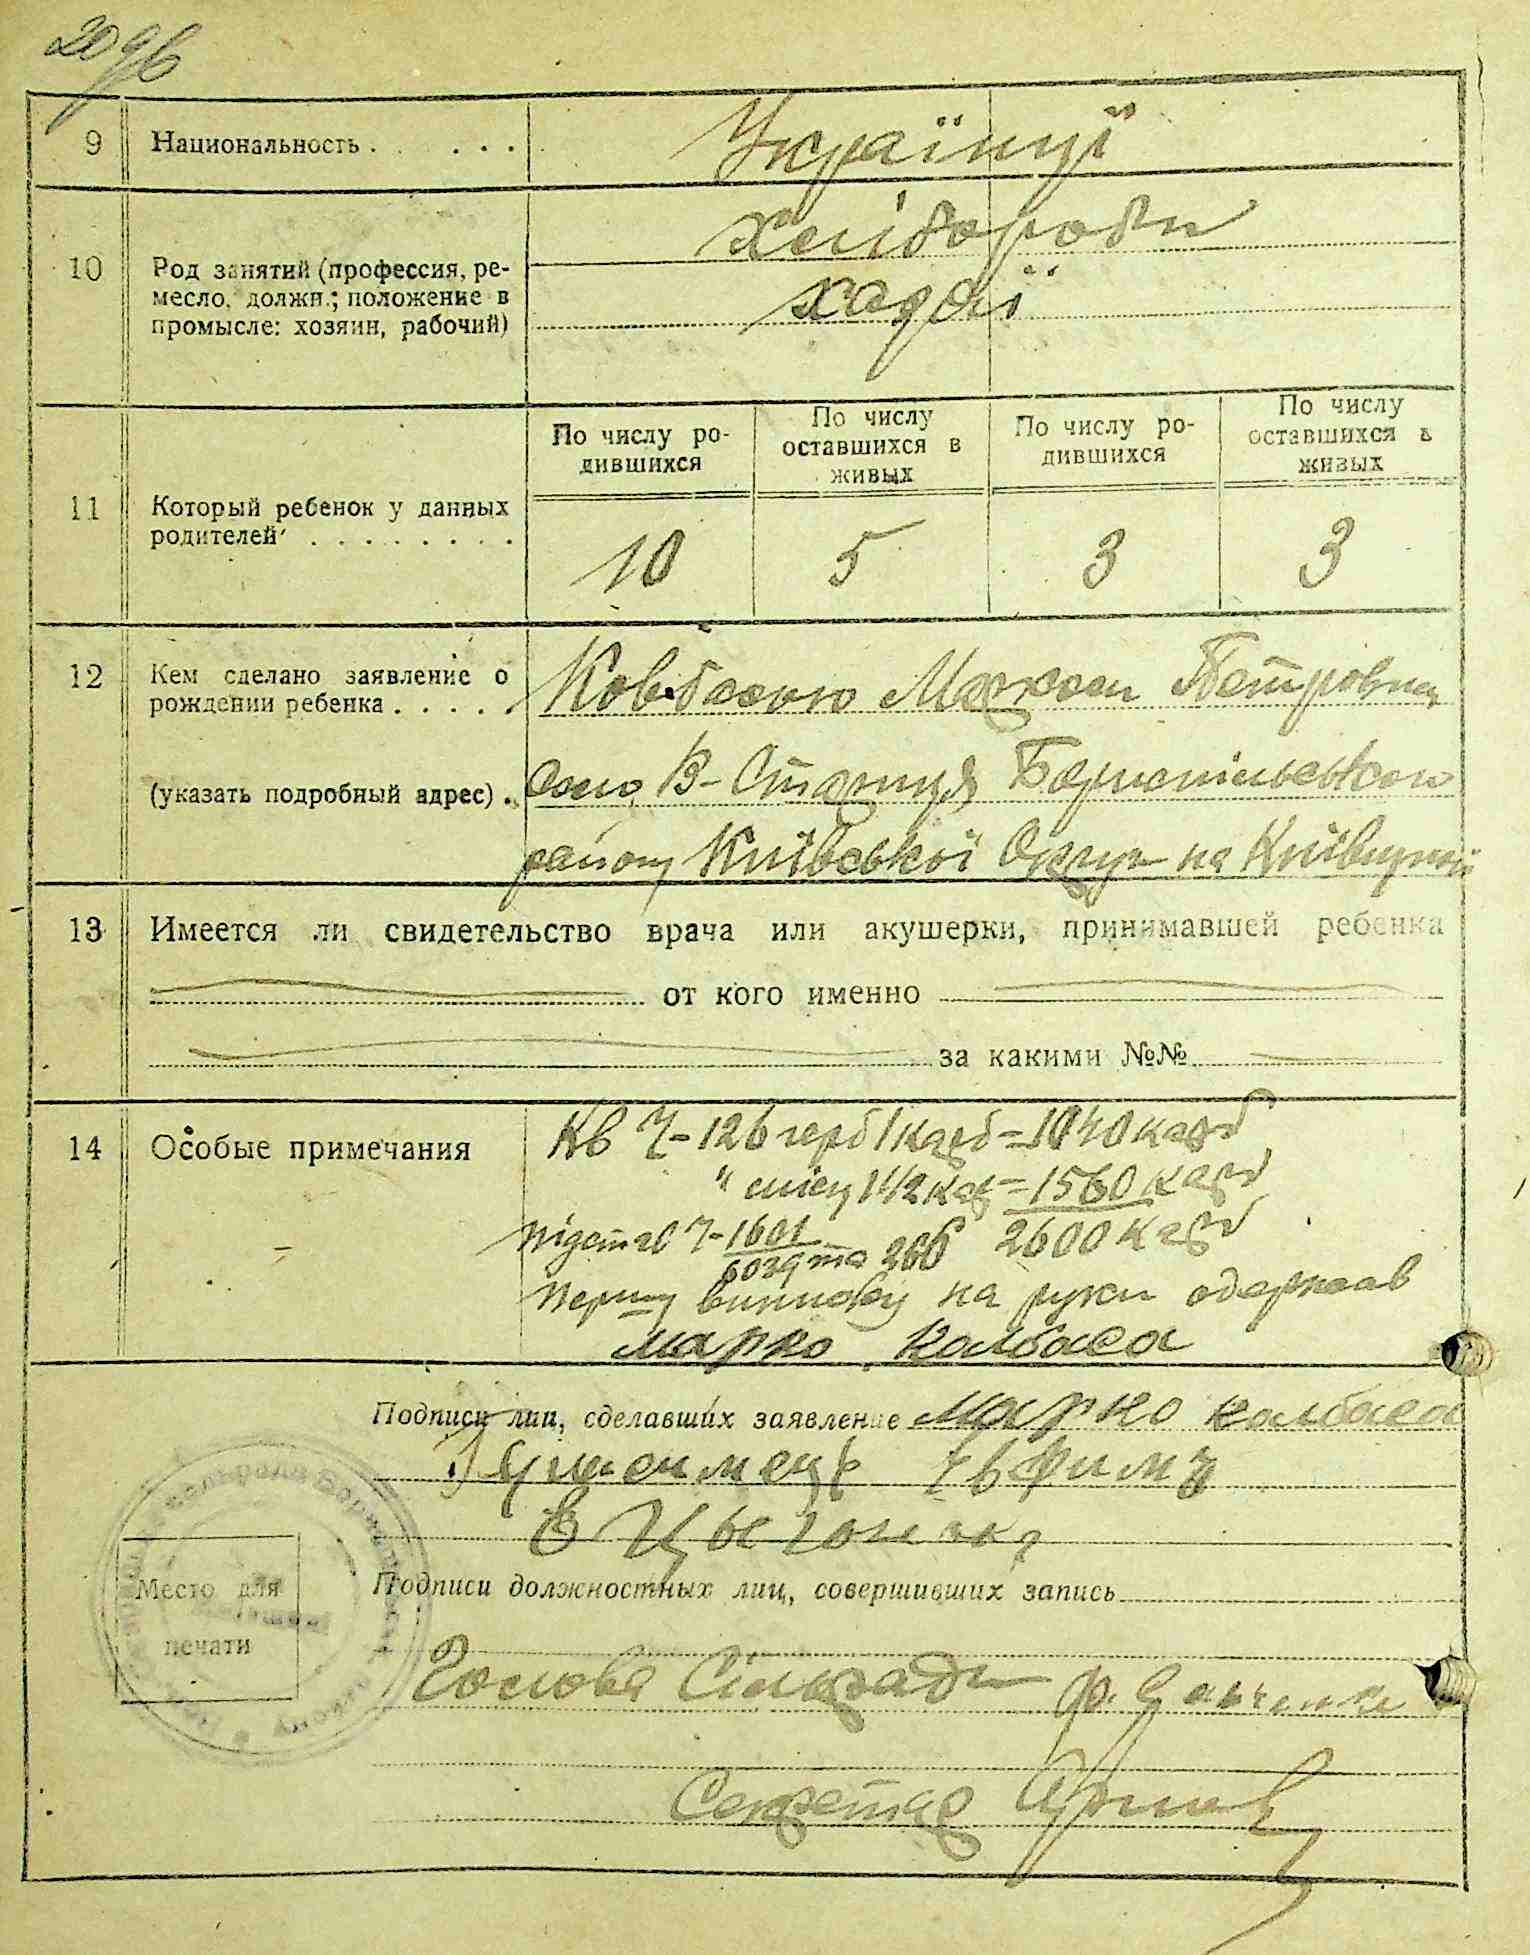 9 Национальность . . . . . Українці
10 Род занятий (профессия, ре-
месло, должн.; положение в
промысле: хозяин, рабочий)
хлібороби
хазяї
11 Который ребенок у данных
родителей . . . . . . . .
По числу ро-
дившихся
По числу
оставшихся в
живых
По числу ро-
дившихся
По числу
оставшихся в
живых
10 5 3 3
12 Кем сделано заявление о
рождении ребенка . . . . .
(указать подробный адрес) .
Ковбасою Марком Петрович
село В-Стариця Бориспільського
району Київської Округи на Київщині
13 Имеется ли свидетельство врача или акушерки, принимавшей ребенка
от кого именно
за какими №№
14 Особые примечания
Кв Ч-126 герб 1 карб = 1040 карб
" місц 1 1/2 кар = 1560 карб
Підстав Ч-1601 2600 карб
та 266
першу виписку на руки одержав
марко калбаса
Подписи лиц, сделавших заявление марко калбаса
Подписи должностных лиц, совершивших запись
Место для
печати
Голова Сільради
Секретар